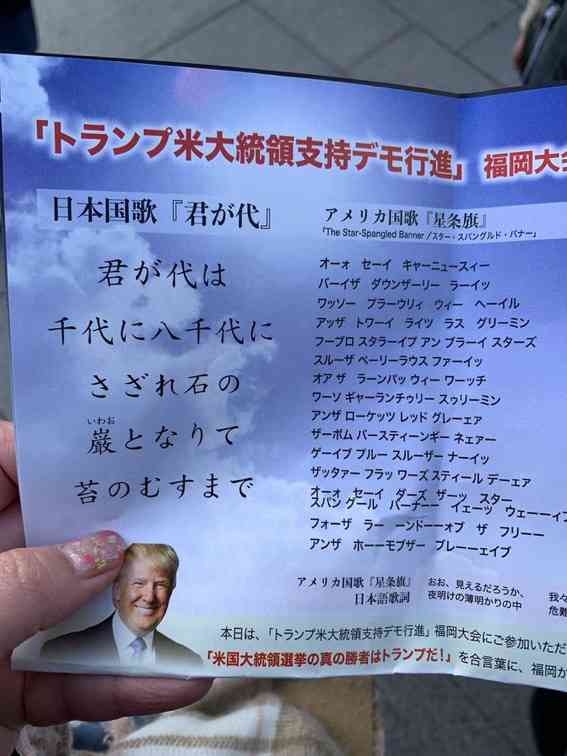 「トランプ米大統領支持デモ行進」 福岡大会
日本国歌『君が代』
君が代は
千代に八千代に
さざれ石の
いわお
巌となりて
苔のむすまで
アメリカ国歌『星条旗』
「The Star-Spangled Banner /スター・スパングルド・バナー」
オーォ セーイ キャーニュースィー
バーイザ ダウンザーリー ラーイツ
ワッソー プラーウリィ ウィー ヘーイル
アッザ トワーイ ライツ ラス グリーミン
フープロ スタラーイプ アン ブラーイ スターズ
スルーザ ペーリーラウス ファーイッ
オア ザ ラーンパッ ウィー ワーッチ
ワーソ ギャーランチゥリー スゥリーミン
アンザ ローケッツ レッド グレーェア
ザーボム バースティーンギー ネェアー
ゲーイブ プルー スルーザー ナーイッ
ザッタァー フラッ ワーズ スティール デーェア
オーォ セーイ ダーズ ザーッ スター
スパン グール バーナーー イェーッ ウェーーィ
フォーザ ラー ーンドーーオブ ザ フリーー
アンザ ホーーモブザー ブレーーェイブ
アメリカ国歌『星条旗』
日本語歌詞
おお、見えるだろうか、
夜明けの薄明かりの中
我々
危難
本日は、「トランプ米大統領支持デモ行進」福岡大会にご参加いただ
「米国大統領選挙の真の勝者はトランプだ！」を合言葉に、福岡か